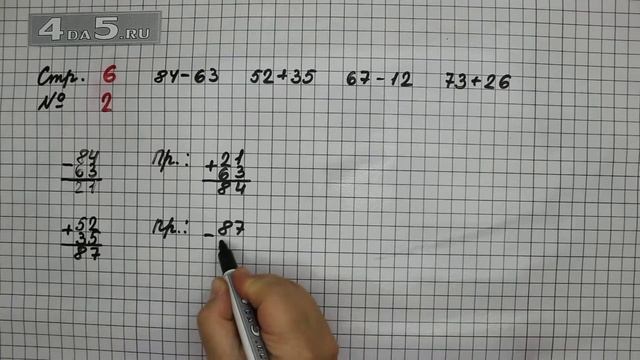 4DA5.RU
Стр. 6 84-63 52+35 67-12 73+26
№ 2
-84 Пр.: +21
63 63
21 84
+52 Пр.: -87
35
87